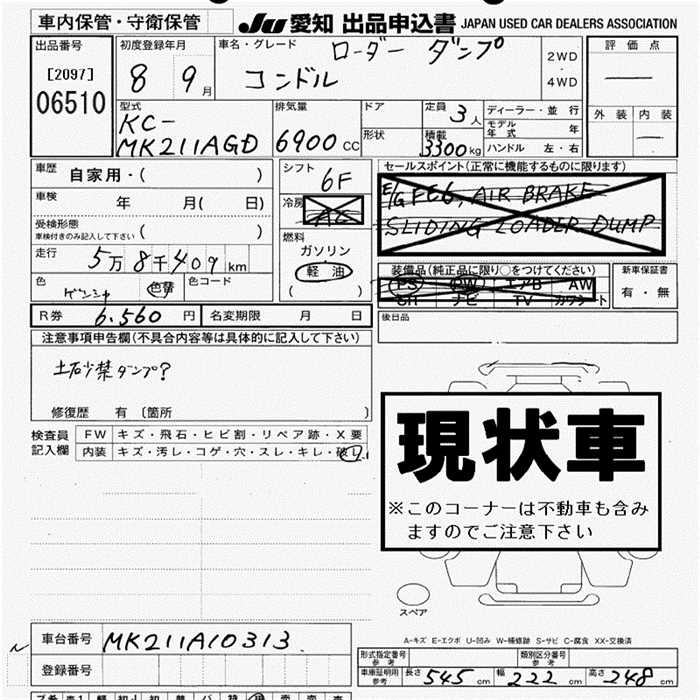 車内保管・守衛保管
JU 愛知 出品申込書 JAPAN USED CAR DEALERS ASSOCIATION
出品番号
[2097]
06510
初度登録年月
8 9月
車名・グレード
ローダー ダンプ
コンドル
2WD
・
4WD
評価点
外装 内装
型式
KC-
MK211AGD
排気量
6900 cc
ドア
形状
定員 3人
積載
3300 kg
ディーラー・並行
モデル年式 年
ハンドル 左・右
車歴
自家用・( )
車検
年 月( 日)
受検形態
車検付きのみ記入して下さい ( )
走行
5万8千409km
色
ゲンシャ
色替
色コード
シフト
6F
冷房
AC
燃料
ガソリン
軽油
( )
セールスポイント(正常に機能するものに限ります)
E/G FE6, AIR BRAKE
SLIDING LOADER DUMP
装備品(純正品に限り○をつけてください)
PS PW エアB AW
SR ナビ TV カワシート
新車保証書
有・無
R券 6.560 円
名変期限 月 日
後日品
注意事項申告欄(不具合内容等は具体的に記入して下さい)
土砂禁ダンプ?
修復歴 有 〔箇所 〕
検査員
記入欄
FW キズ・飛石・ヒビ割・リペア跡・X要
内装 キズ・汚レ・コゲ・穴・スレ・キレ・破レ
現状車
※このコーナーは不動車も含み
ますのでご注意下さい
スペア
A-キズ E-エクボ U-凹み W-補修跡 S-サビ C-腐食 XX-交換済
車台番号 MK211A10313
登録番号
形式指定番号
参考
類別区分番号
参考
車庫証明用
参考
長さ 545 cm 幅 222 cm 高さ 248 cm